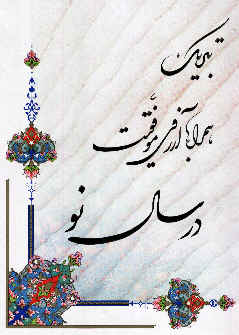 تبریک
همراه با آرزوی موفقیت
در سال نو